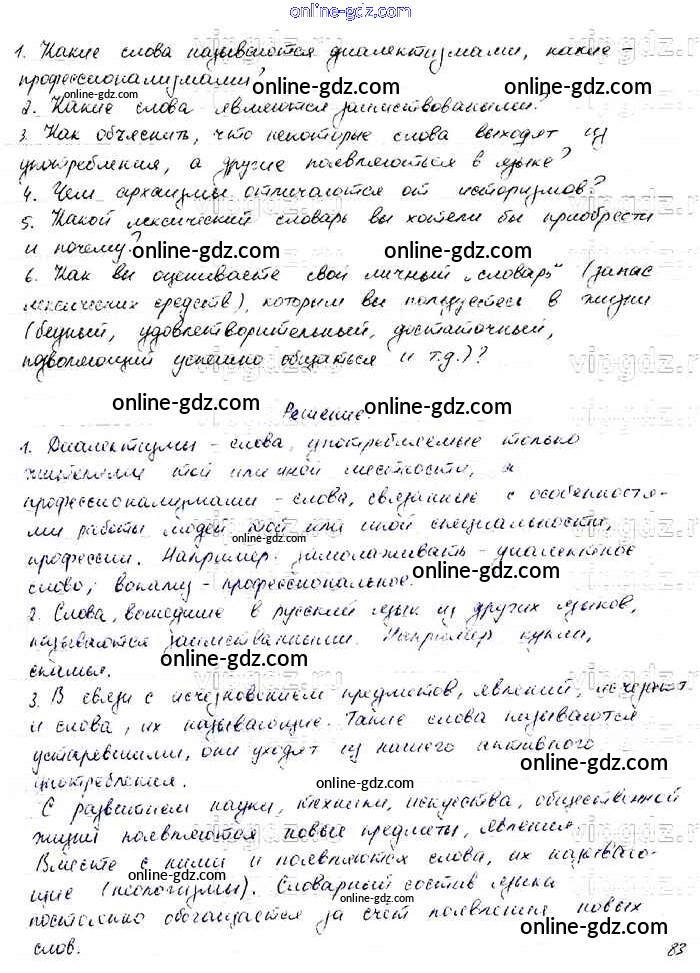 online-gdz.com
1. Какие слова называются диалектизмами, какие -
профессионализмами?
online-gdz.com online-gdz.com
2. Какие слова являются заимствованными?
3. Как объяснить, что некоторые слова выходят из
употребления, а другие появляються в языке?
vipgdz.ru
4. Чем архаизмы отличаются от историзмов?
5. Какой лексический словарь вы хотели бы приобрести
и почему?
online-gdz.com online-gdz.com
6. Как вы оцениваете свой личный „словарь“ (запас
лексических средств), которым вы пользуетесь в жизни
(бедный, удовлетворительный, достаточный,
позволяющий успешно общаться и т.д.)?
vipgdz.ru
online-gdz.com Решение. online-gdz.com
1. Диалектизмы - слова, употребляемые только
жителями той или иной местности, а
online-gdz.com
профессионализмами - слова, связанные с особенностя-
ми работы людей той или иной специальности,
online-gdz.com
профессии. Например: замолаживать - диалектное
слово; - профессиональное.
online-gdz.com
2. Слова, вошедшие в русский язык из других языков,
называются заимстванными. Например кукли,
скамья.
online-gdz.com
3. В связи с исчезновением предметов, явлений, исчезают
и слова, их называющие. Такие слова называются
устаревшими, они уходят из нашего активного
употребления.
online-gdz.com online-gdz.com
С развитием науки, техники, искусства, общественной
жизни появляются новые предметы, явления.
Вместе с ними и появляются слова, их называю-
щие (неологизмы). Словарный состав языка
online-gdz.com online-gdz.com
постоянно обогащается за счет появления новых
слов.
83